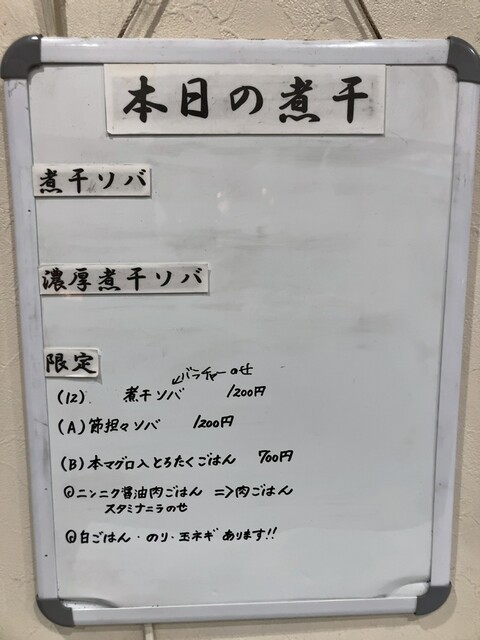 本日の煮干
煮干ソバ
濃厚煮干ソバ
限定
バラチャーのせ
(12). 煮干ソバ 1200円
(A) 節担々ソバ 1200円
(B) 本マグロ入とろたくごはん 700円
ニンニク醤油肉ごはん => 肉ごはん
スタミナニラのせ
白ごはん・のり・玉ネギあります!!